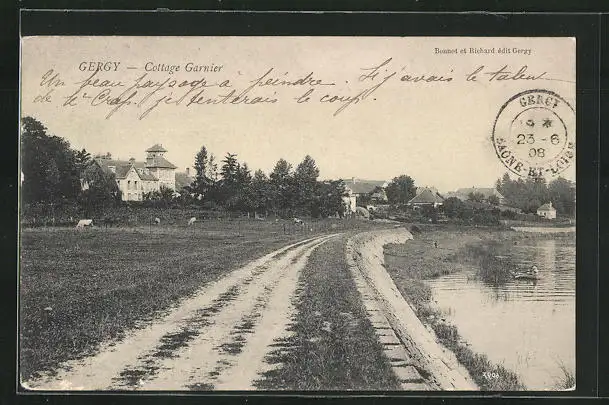 Bonnet et Richard édit Gergy
GERGY — Cottage Garnier
Un beau paysage à peindre. Si j'avais le talent
de d° Crap, je tenterais le coup.
GERGY
23-6
08
SAÔNE-ET-LOIRE